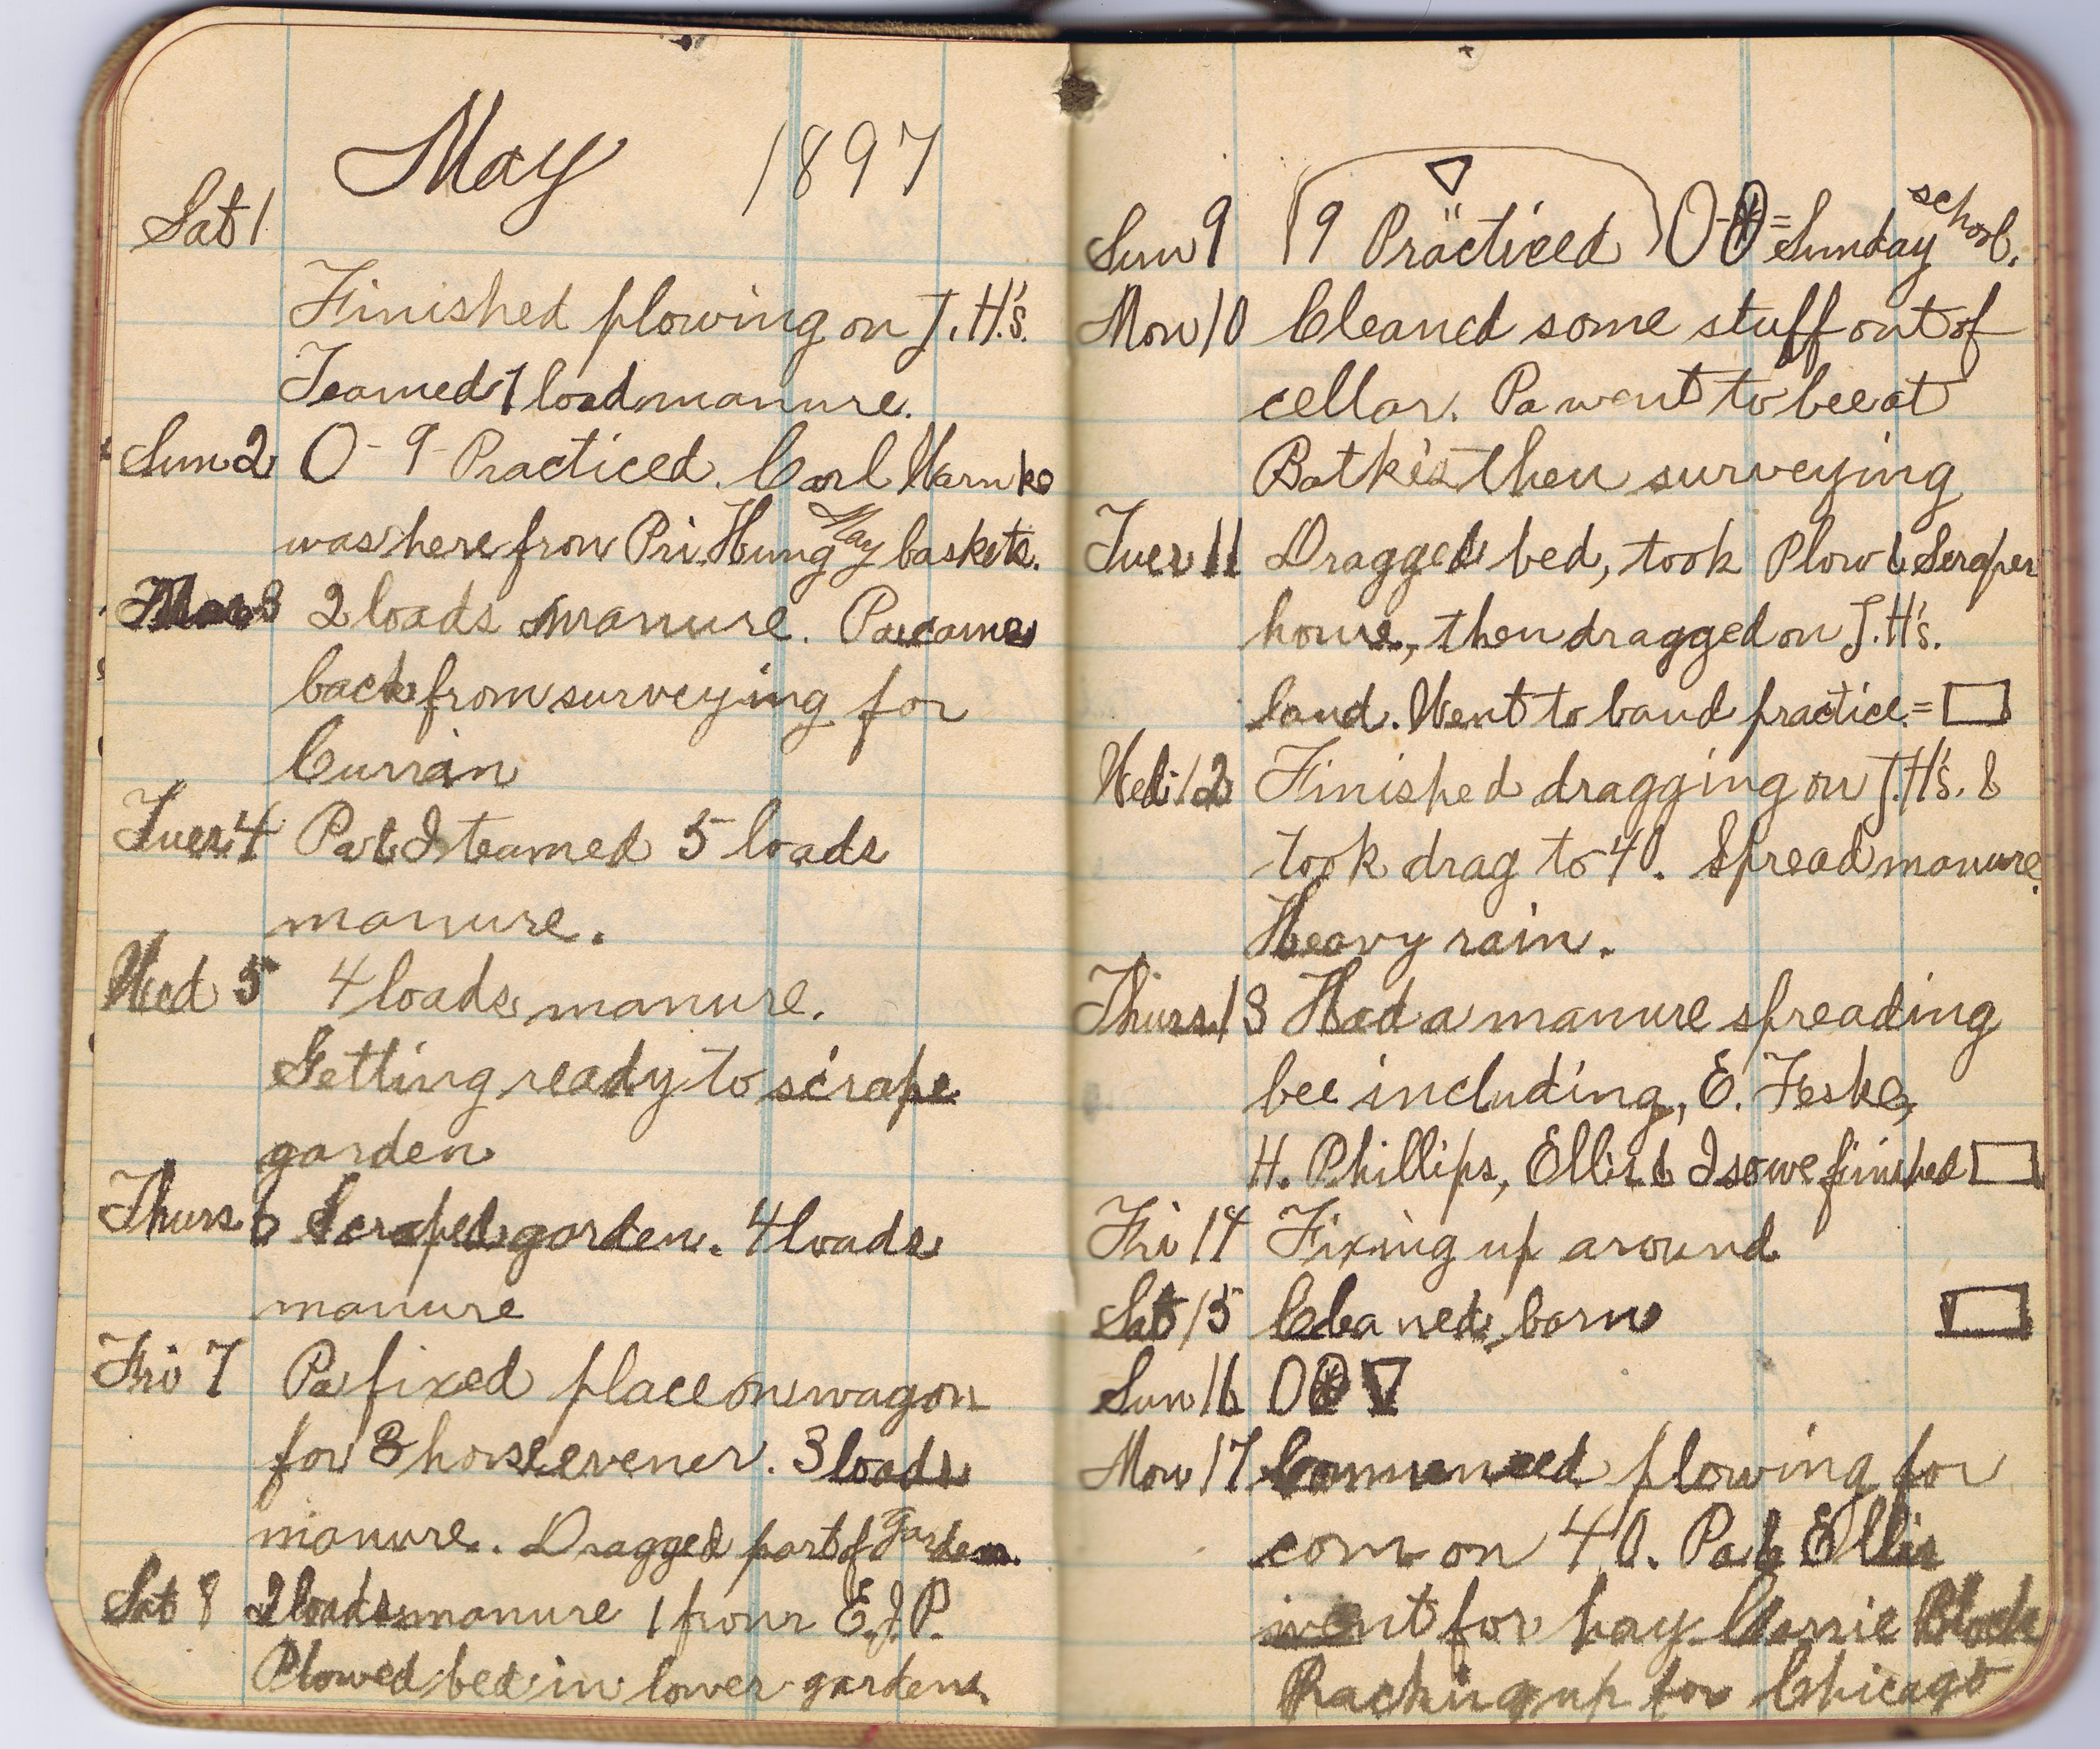 May 1897
Sat 1
Finished plowing on J.H's.
Teamed 1 load manure.
Sun 2 O - 9 - Practiced. Carl Warnke
was here from Pri. Hung May baskets.
Mon 3 2 loads manure. Pa came
back from surveying for
Curran
Tues. 4 Pa & I teamed 5 loads
manure.
Wed 5 4 loads manure.
Getting ready to scrape
garden
Thurs. 6 Scraped garden. 4 loads
manure
Fri 7 Pa fixed place on wagon
for 3 horse evener. 3 loads
manure. Dragged part of garden.
Sat 8 2 loads manure 1 from E.J.P.
Plowed bed in lower garden.
Sun 9 9 Practiced = Sunday school.
Mon 10 Cleaned some stuff out of
cellar. Pa went to bee at
Batkis then surveying
Tues 11 Dragged bed, took Plow & Scraper
home, then dragged on J.H's.
land. Went to band practice. =
Wed. 12 Finished dragging on J.H's. &
took drag to 40. Spread manure.
Heavy rain.
Thurs. 13 Had a manure spreading
bee including, E. Feske,
H. Phillips, Ellis & I so we finished
Fri 14 Fixing up around
Sat 15 Cleaned barn
Sun 16
Mon 17 Commenced plowing for
corn on 40. Pa & Ellis
went for hay. Carrie Block
Packing up for Chicago